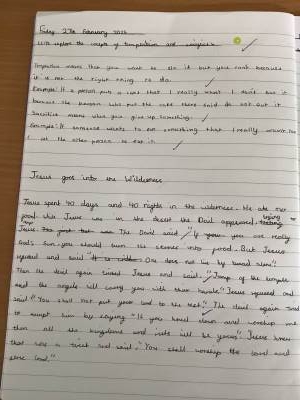 Friday 27th February
L.O: explore the concepts of temptation and
Temptation means that you want to do it but you cant because
it is not the right thing to do.
Example: If a person puts a cake that I really want I don't eat it
because the person who put the cake there said do not eat it.
Sacrifice means when you give up something.
Example: If someone wants to eat something that I really want
I let the other person to eat it.
Jesus goes into the Wilderness
Jesus spent 40 days and 40 nights in the wilderness. He ate no
food. while Jesus was in the desert the Devil appeared, trying
Jesus. The Devil said "If you are really
God's Son, you should turn the stones into bread. But Jesus
refused and said One does not live by bread alone".
Then the devil again tested Jesus and said, "Jump of the temple
and the angels will carry you with their hands." Jesus refused and
said "You shall not put your God to the test." The devil again tried
to tempt him by saying "If you kneel down and worship me
then all the kingdoms and will be yours." Jesus knew
that was a trick and said, "You shall worship the Lord and